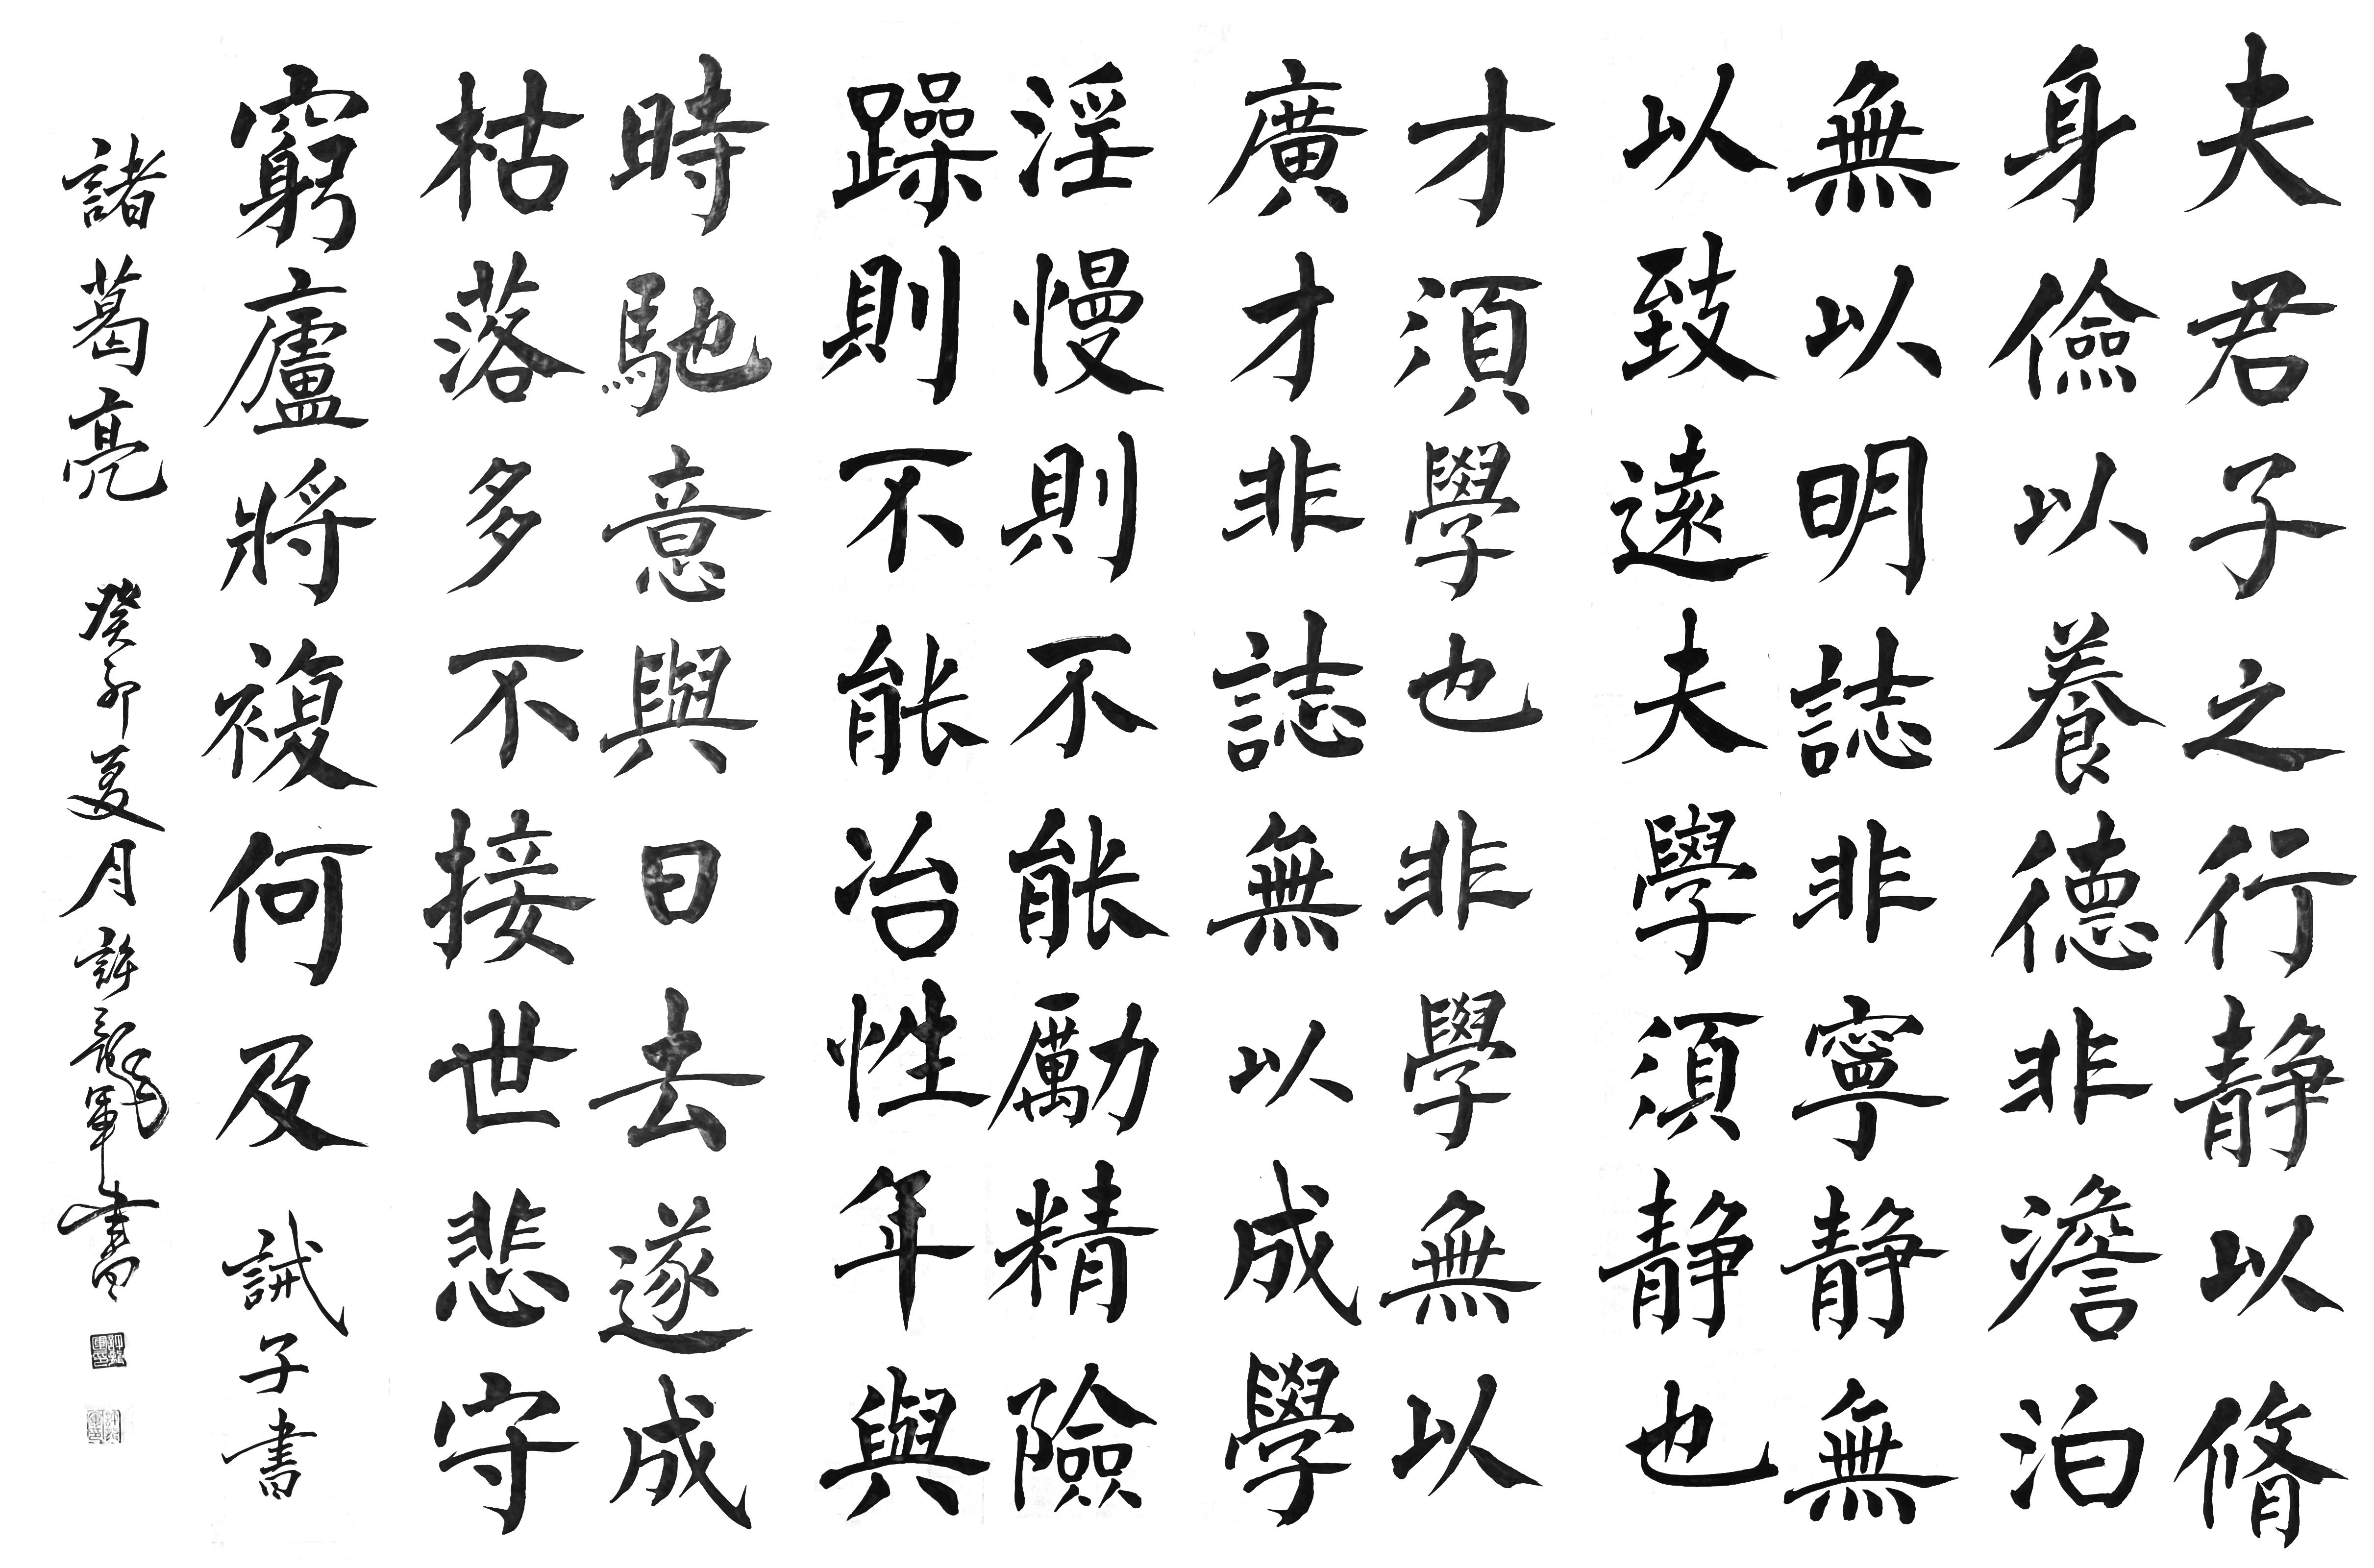 夫君子之行静以脩
身儉以養德非澹泊
無以明誌非寧静無
以致遠夫學須静也
才須學也非學無以
廣才非誌無以成學
淫慢則不能勵精險
躁則不能冶性年與
時馳意與日去遂成
枯落多不接世悲守
窮廬將複何及 誡子書
諸葛亮 癸卯夏月許龍軍書